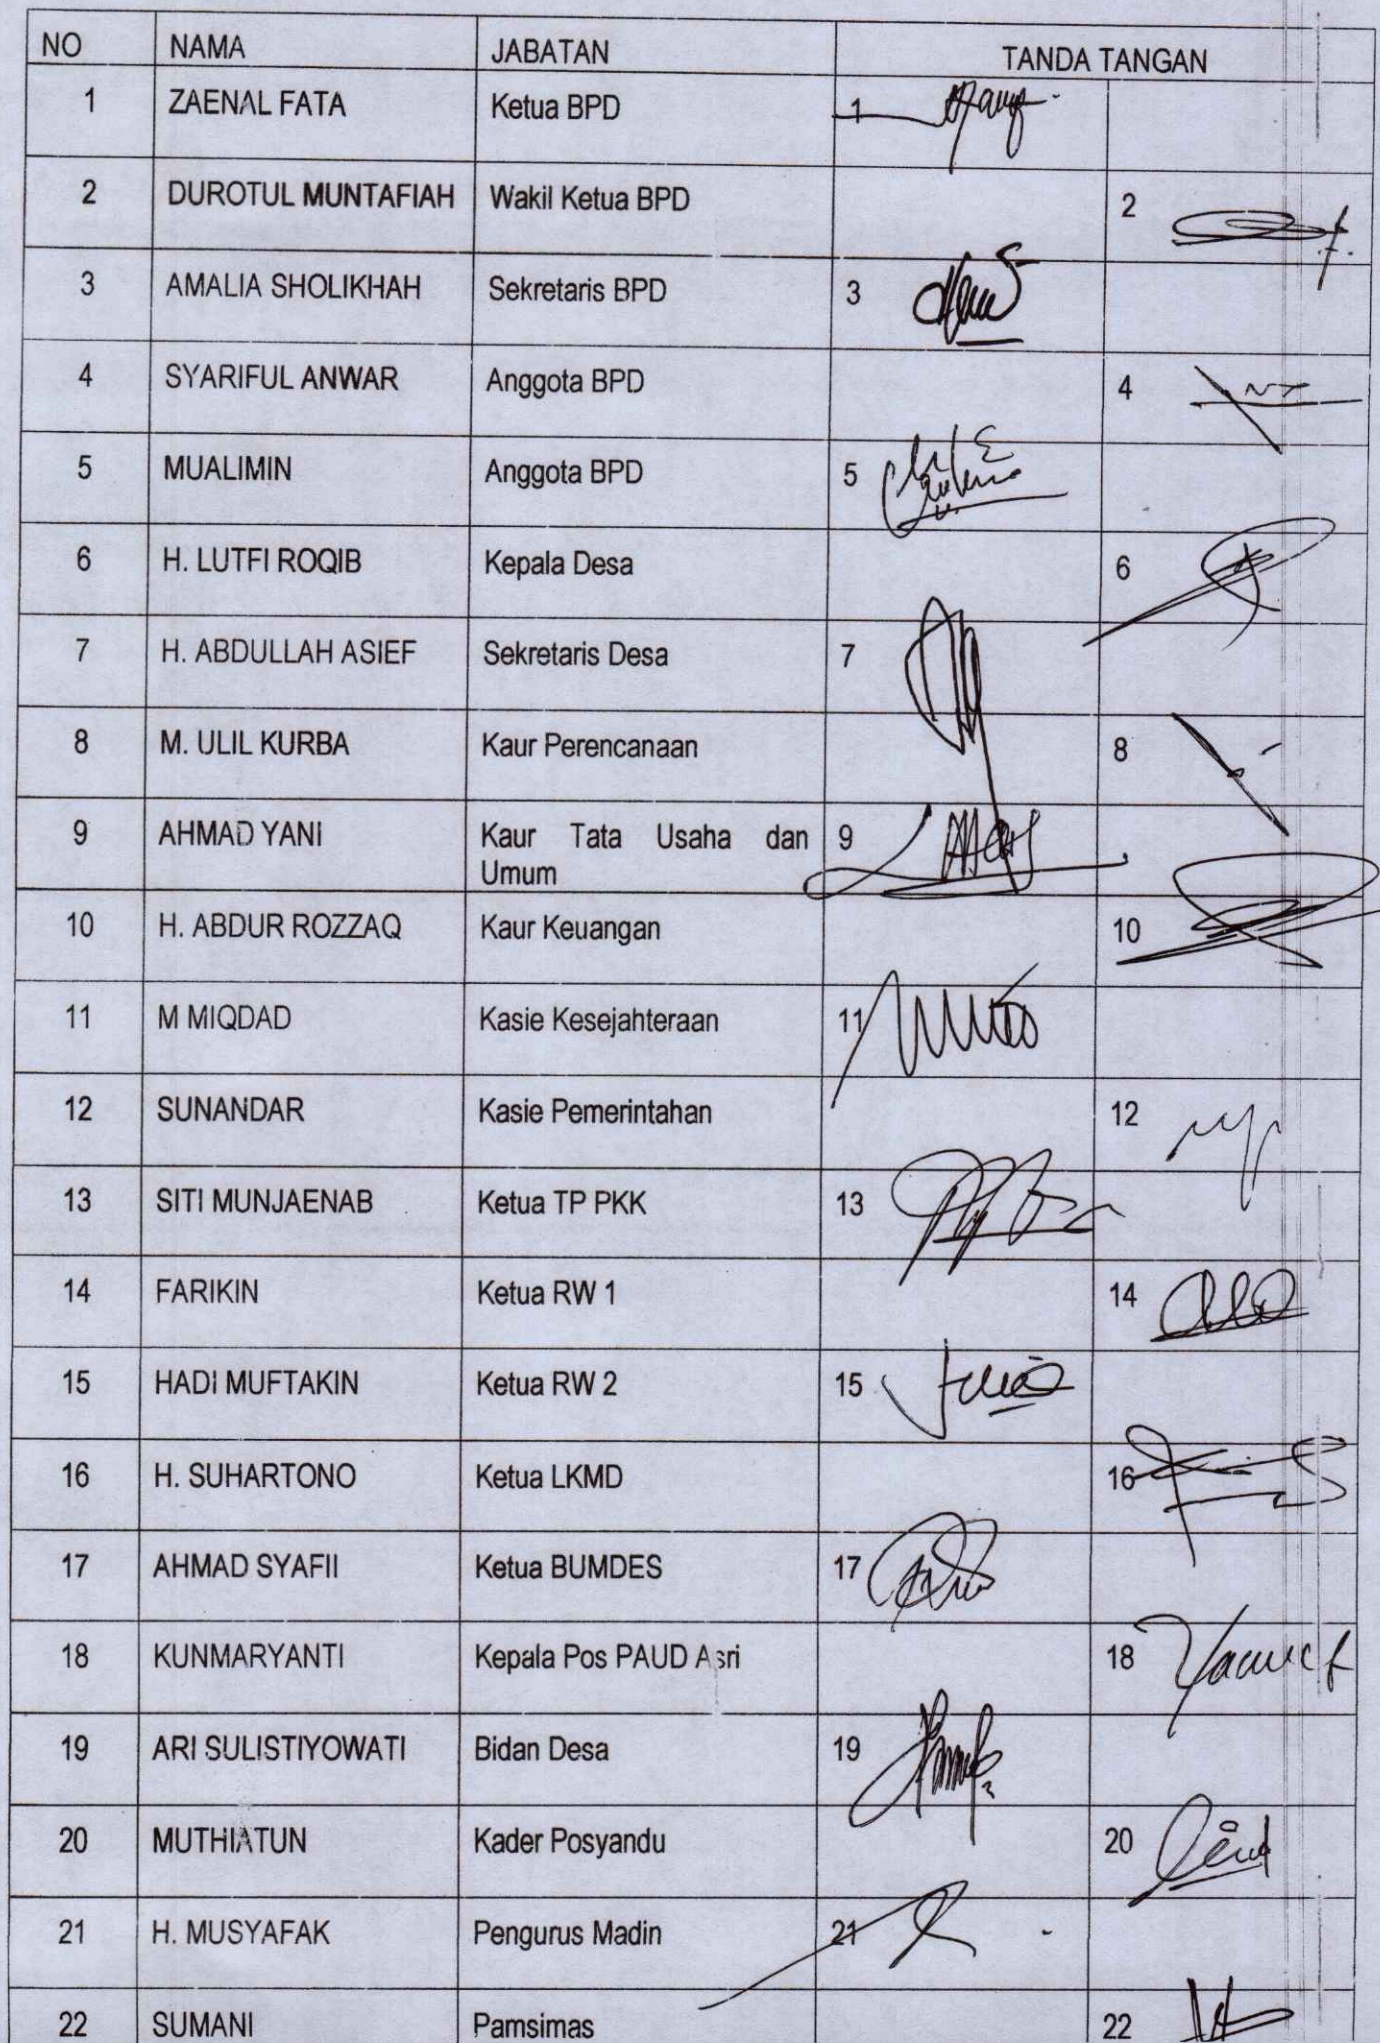 NO NAMA JABATAN TANDA TANGAN
1 ZAENAL FATA Ketua BPD 1
2 DUROTUL MUNTAFIAH Wakil Ketua BPD 2
3 AMALIA SHOLIKHAH Sekretaris BPD 3
4 SYARIFUL ANWAR Anggota BPD 4
5 MUALIMIN Anggota BPD 5
6 H. LUTFI ROQIB Kepala Desa 6
7 H. ABDULLAH ASIEF Sekretaris Desa 7
8 M. ULIL KURBA Kaur Perencanaan 8
9 AHMAD YANI Kaur Tata Usaha dan 9
Umum
10 H. ABDUR ROZZAQ Kaur Keuangan 10
11 M MIQDAD Kasie Kesejahteraan 11
12 SUNANDAR Kasie Pemerintahan 12
13 SITI MUNJAENAB Ketua TP PKK 13
14 FARIKIN Ketua RW 1 14
15 HADI MUFTAKIN Ketua RW 2 15
16 H. SUHARTONO Ketua LKMD 16
17 AHMAD SYAFII Ketua BUMDES 17
18 KUNMARYANTI Kepala Pos PAUD Asri 18
19 ARI SULISTIYOWATI Bidan Desa 19
20 MUTHIATUN Kader Posyandu 20
21 H. MUSYAFAK Pengurus Madin 21
22 SUMANI Pamsimas 22